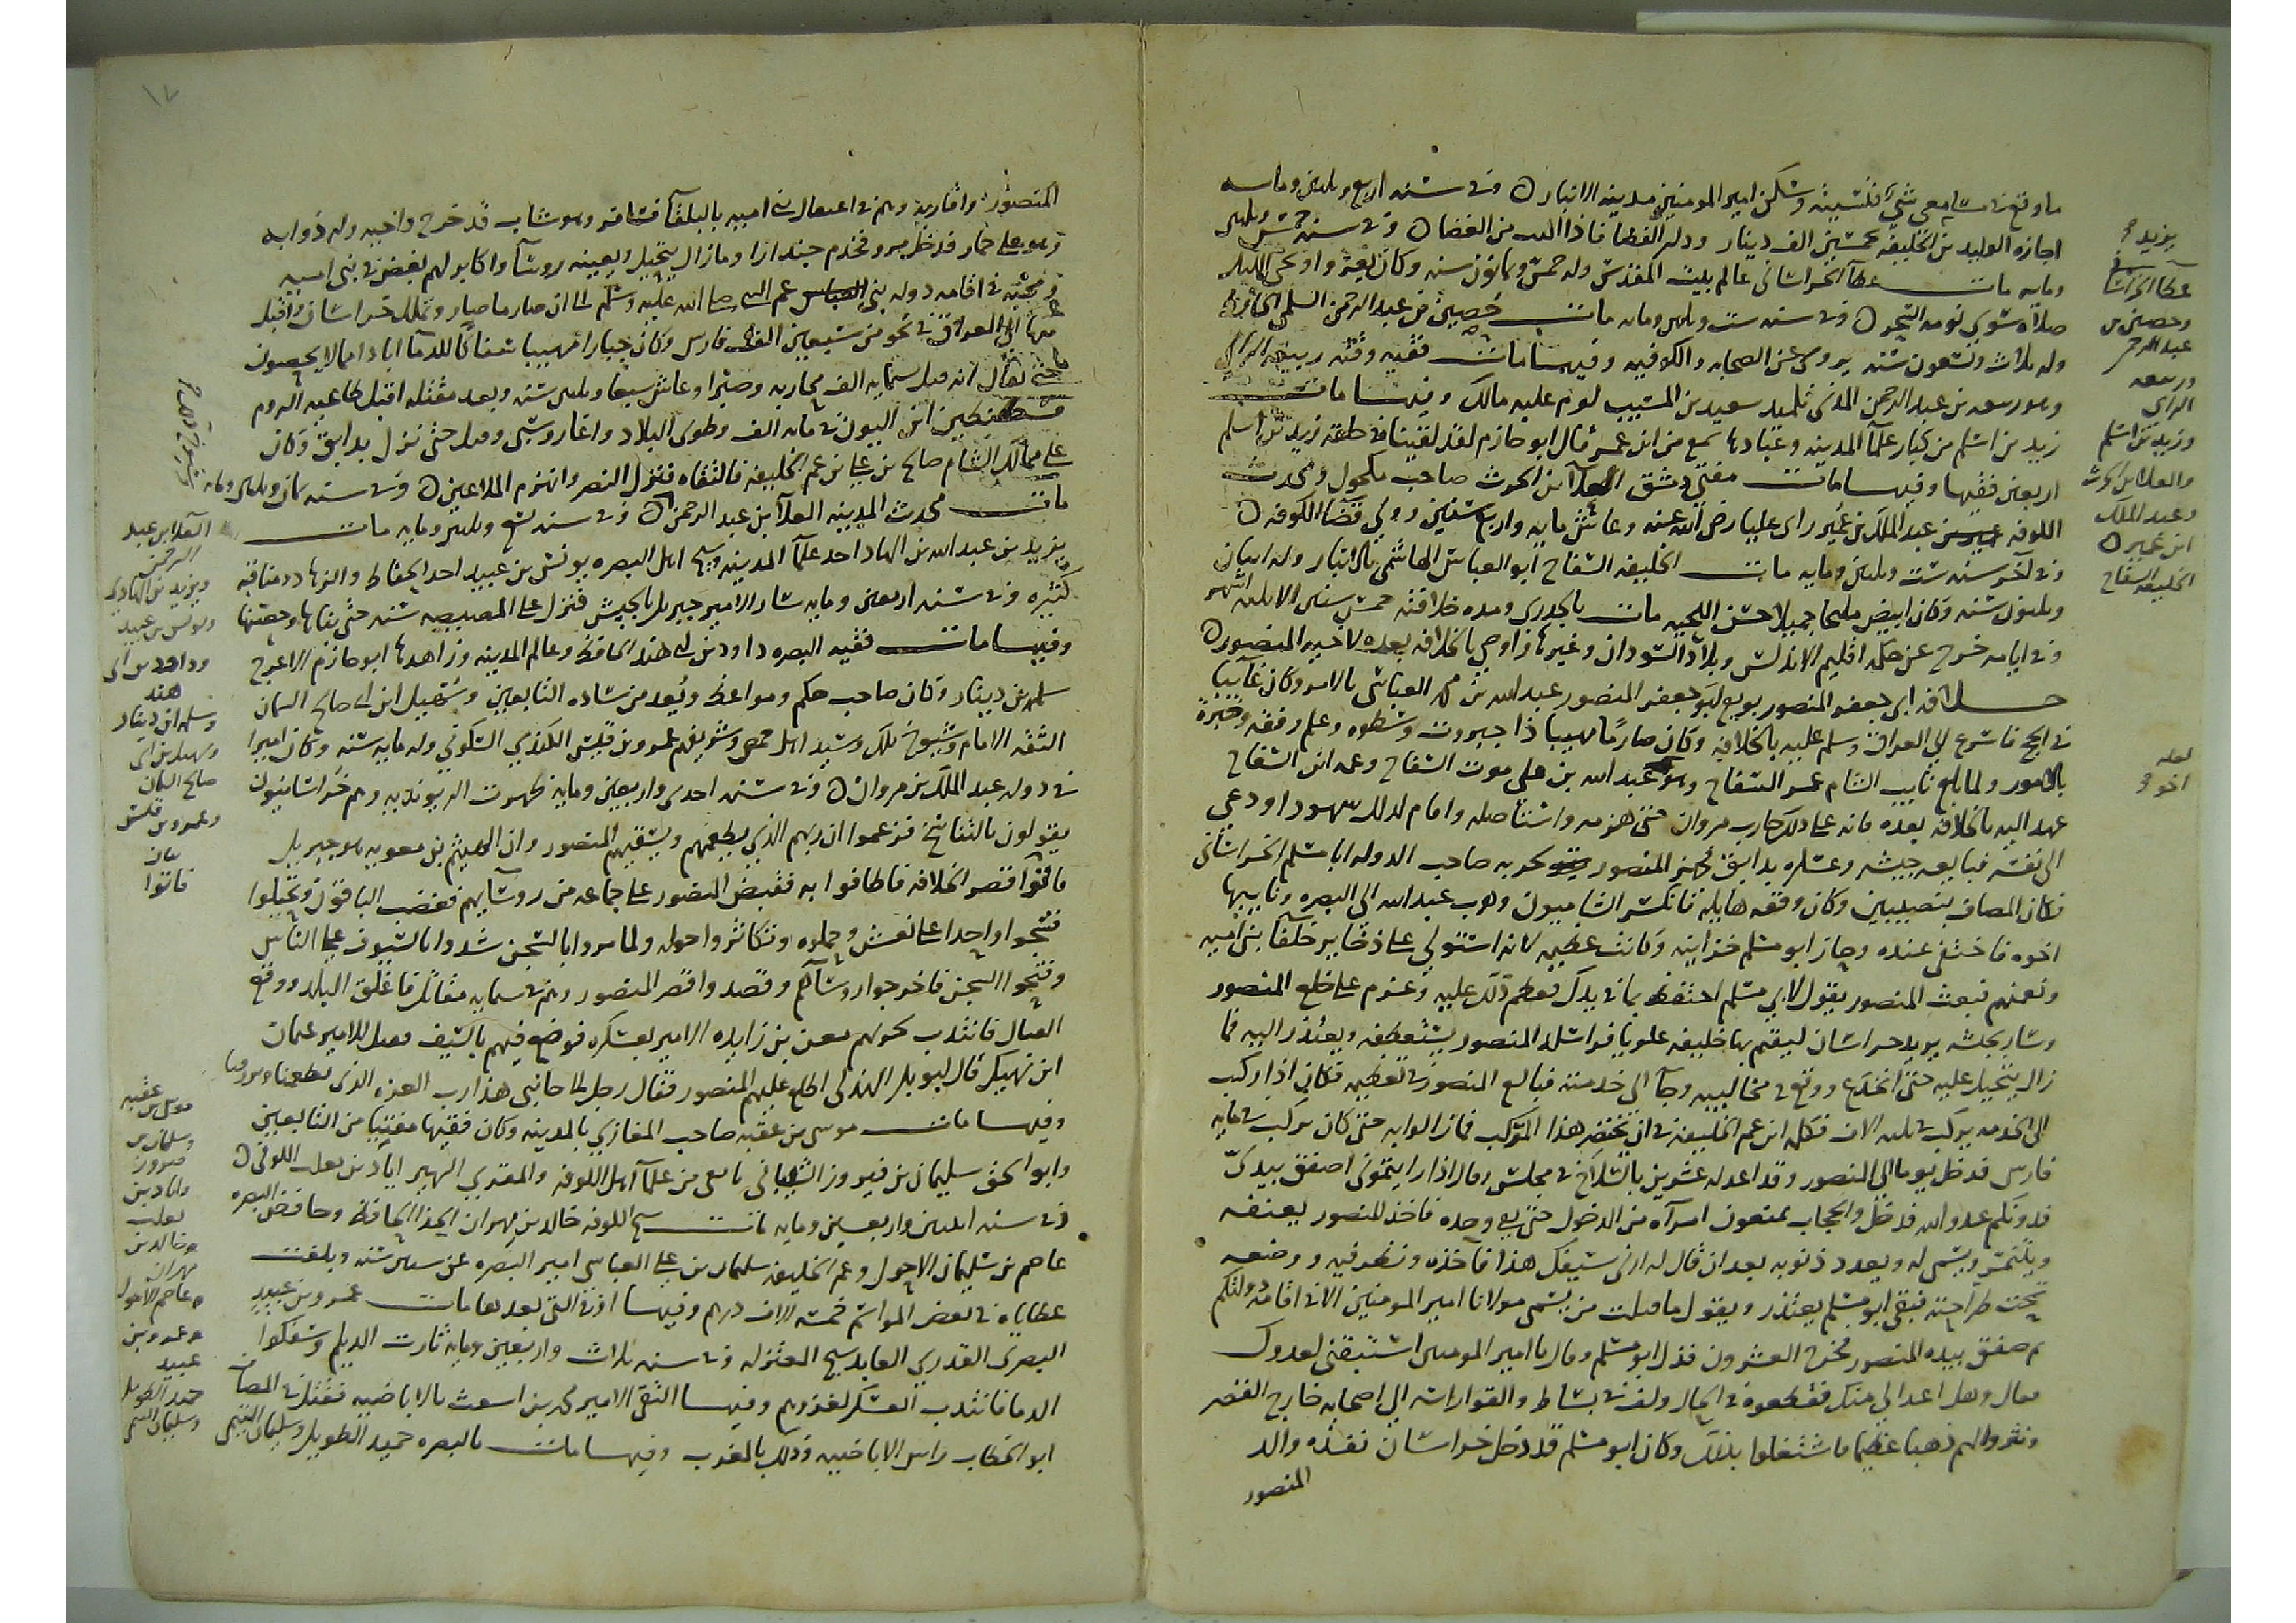 ما وقع في مسامعي شي فنسيته وسكن امير المومنين مدينه الانبار ه وفي سنه اربع وثلثين ومايه
اجازه الوليد من الخليفه بخمسين الف دينار
ومايه مات عطآ الخراساني عالم بيت المقدس وله خمس وثمانون سنه وكان يغزوا ويحيي الليل
صلاه سوي نومه السحر ه وفي سنه ست وثلثين ومايه مات حصين بن عبد الرحمن السلمي الحافظ
وله ثلاث وتسعون سنه يروي عن الصحابه والكوفيين وفيها مات فقيه وقته ربيعه الراي
وهو ربيعه بن عبد الرحمن المدني تلميد سعيد بن المسيب لزم عليه مالك وفيها مات
زيد بن اسلم من كبار علمآ المدينه وعبادها سمع من ابن عمر قال ابو حازم لقد لقينا في حلقه زيد بن اسلم
اربعين فقيها وفيها مات مفتي دمشق العلآ بن الحرث صاحب مكحول ومحدث
الكوفه عبد الملك بن عمير راى عليا رضي الله عنه وعاش مايه واربع سنين وولي قضآ الكوفه ه
وفي آخر سنه ست وثلثين ومايه مات الخليفه السفاح ابو العباس الهاشمي بالانبار وله اثنان
وثلثون سنه وكان ابيض مليحا جميلا حسن اللحيه مات بالجدري ومده خلافته خمس سنين الا ثلثه اشهر
وفي ايامه خرج عن حكمه اقليم الاندلس وبلاد السودان وغيرها واوصي بالخلافه بعده لاخيه المنصور ه
خلافه ابي جعفر المنصور بويع ابو جعفر المنصور عبد الله بن محمد العباسي بالامر وكان غآيبا
في الحج فاسرع الي العراق وسلم عليه بالخلافه وكان صارما مهيبا ذا جبروت وسطوه وعلم وفقه وخبرة
بالامور ولما بلغ نايب الشام عم السفاح وهو عبد الله بن علي موت السفاح وعم ان السفاح
عهد اليه بالخلافه بعده فانه على ذلك حارب مروان حتى هزمه واستاصله واقام لذلك شهود او دعي
الى نفسه فبايعه جيشه وعسكره بدابق فجهز المنصور لحربه صاحب الدوله ابا مسلم الخراساني
فكان المصاف بنصيبين وكان وقعه هايله فانكسر الشاميون وهرب عبد الله الي البصره ونايبها
اخوه فاختفى عنده وحاز ابو مسلم خزاينه وكانت عظيمه لانه استولي على ذخاير خلفآ بني اميه
ونعمهم فبعث المنصور يقول لابي مسلم احتفظ بما في يدك فعظم ذلك عليه وعزم على خلع المنصور
وسار بجيشه يريد خراسان ليقيم بها خليفه علويا فراسله المنصور يستعطفه ويعتذر اليه فما
زال يتحيل عليه حتى انخدع ووقع في مخاليبه وجآ الى خدمته فبالغ المنصور في تعظيمه فكان اذا ركب
الى الخدمه يركب في ثلثه الاف فكلم ابن عم الخليفه في ان يختصر هذا الموكب فما زالوا به حتى كان يركب في مايه
فارس فدخل يوما الي المنصور وقد اعد له عشرين بالسلاح في مجلس وقال اذا رايتموني اصفق بيدي
فدونكم عدو الله فدخل والحجاب يمنعون امرآه من الدخول حتى بقي وحده فاخذ المنصور يعنفه
ويتنمر ويشتم له ويعدد ذنوبه بعد ان قال له ارني سيفك هذا فاخذه ونظر فيه ووضعه
تحت طراحته فبقي ابو مسلم يعتذر ويقول ما قبلت من يشتمي مولانا امير المومنين الا في اقامه دولتكم
ثم صفق بيده المنصور فخرج العشرون فذل ابو مسلم وقال يا امير المومنين استبقني لعدوك
فقال وهل اعدا لي منك فقطعوه في الحال ولف في بساط والقوا راسه الي اصحابه خارج القصر
ونثر والهم ذهبا عظيما فاشتغلوا بذلك وكان ابو مسلم قد دخل خراسان نفذه والد
المنصور
يزيد
عطا الخراساني
وحصين بن
عبد الرحمن
وربيعه
الراي
وزيد بن اسلم
والعلا بن الحرث
وعبد الملك
ابن عمير ه
الخليفه السفاح
لعله
اخو
١٧
المنصور واقاربه وهم في اعتقال بني اميه بالبلقآ فشاهر وهو شاب قد خرج
وهو على حمار فدخل مرو فخدم جندارا وما زال يتحيل ويعينه روسآ واكابر لهم بغض في بني اميه
ومحبته في اقامه دوله بني العباس عم النبي صلى الله عليه وسلم الى ان صار ما صار وتملك خراسان واقبل
منها الي العراق في نحو من سبعين الف فارس وكان جبارا مهيبا سفاكا للدمآ اباد امما لا يحصون
حتى يقال انه قتل ستمايه الف محاربه وصبرا وعاش سبعا وثلثين سنه وبعد مقتله اقبل طاغيه الروم
قسطنطين ابن اليون في مايه الف وطوى البلاد واغار وسبى وقتل حتى نزل بدابق وكان
على ممالك الشام صالح بن علي بن عم الخليفه فالتقاه فنزل النصر وانهزم الملاعين ه وفي سنه ثمان وثلثين ومايه
مات محدث المدينه العلآ بن عبد الرحمن ه وفي سنه تسع وثلثين ومايه مات
يزيد بن عبد الله بن الهاد احد علمآ المدينه وشيخ اهل البصره يونس بن عبيد احد الحفاظ والزهاد ومناقبه
كثيره وفي سنه اربعين ومايه سار الامير جبريل بالجيش فنزل على المصيصه سنه حتى بناها وحصنها
وفيها مات فقيه البصره داود بن ابي هند الحافظ وعالم المدينه وزاهدها ابو حازم الاعرج
سلمه بن دينار وكان صاحب حكم ومواعظ ويعد من ساده التابعين وسهيل ابن ابي صالح السمان
الثقه الامام وشيوخ ملك وسيد اهل حمص وشريفهم عمرو بن قيس الكندي السكوني وله مايه سنه وكان اميرا
في دوله عبد الملك بن مروان ه وفي سنه احدى واربعين ومايه ظهرت الريونديه وهم خراسانيون
يقولون بالتناسخ فزعموا ان ربهم الذي يطعمهم ويسقيهم المنصور وان الهيثم بن معويه هو جبريل
فاتوا قصر الخلافه فطافوا به فقبض المنصور على جماعه من روسآيهم فغضب الباقون وتحيلوا
فنتجوا واحدا على نعش وحملوه وتكاثروا حوله ولما مروا بالسجن شدوا بالسيوف على الناس
وفتحوا السجن فاخرجوا روسآهم وقصدوا قصر المنصور وهم ستمايه مقاتل فاغلق البلد ووقع
القتال فانتدب لحربهم معن بن زايده الامير بعسكره فوضع فيهم بالسيف فقتل الامير عثمان
ابن نهيك قال ابو بكر الهذلي اطلع عليهم المنصور فقال رجل الى جانبي هذا رب العزه الذي يطعمنا ويرزقنا
وفيها مات موسى بن عقبه صاحب المغازي بالمدينه وكان فقيها مفتيا من التابعين
وابو اسحق سليمان بن فيروز الشيباني تابعي من علمآ اهل الكوفه والمقري الشهير ابان بن تغلب الكوفي ه
وفي سنه اثنين واربعين ومايه مات شيخ الكوفه خالد بن مهران الحذآ الحافظ وحافظ البصره
عاصم بن سليمان الاحول وعم الخليفه سليمان بن علي العباسي امير البصره عن ستين سنه وبلغت
عطاياه في بعض المواسم خمسه الاف درهم وفيها او في التي بعدها مات عمرو بن عبيد
البصري القدري العابد شيخ المعتزله وفي سنه ثلاث واربعين ومايه ثارت الديلم وسفكوا
الدما فانتدب العسكر لغزوهم وفيها التقى الامير محمد بن اشعث بالاباضيه فقتل في المصاف
ابو الخطاب راس الاباضيه وذلك بالمغرب وفيها مات بالبصره حميد الطويل وسليمان التيمي
العلا بن عبد
الرحمن
ويزيد بن الهادي
ويونس بن عبيد
وداود بن ابي
هند
وسلمه ابن دينار
وسهيل بن ابي
صالح السمان
وعمرو بن قيس
فاتوا
موسى بن عقبه
وسليمان بن
فيروز
وابان بن
تغلب
وخالد بن
مهران
وعاصم الاحول
وعمرو بن
عبيد
حميد الطويل
وسليمان التيمي